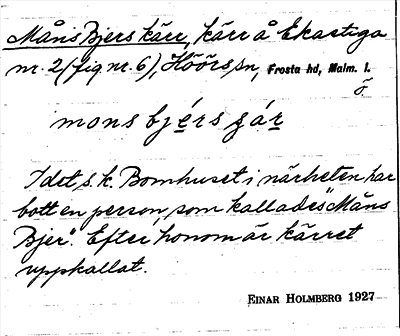 Måns Bjers kärr, kärr å Ekastiga
nr. 2 (fig nr. 6), Höörs sn, Frosta hd, Malm. l.
ö
mons bjérs ɟár
I det s. k. Bomhuset i närheten har
bott en person, som kallades "Måns
Bjer". Efter honom är kärret
uppkallat.
EINAR HOLMBERG 1927